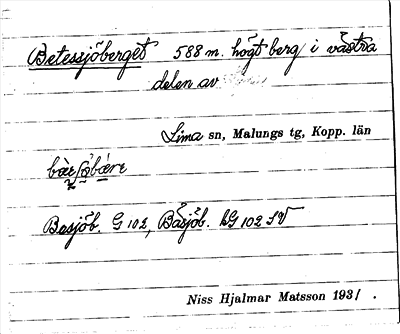 Betessjöberget 588 m. högt berg i västra
delen av
Lima sn, Malungs tg, Kopp. län
Basjöb. G 102, Båsjöb. hG 102 SV
Niss Hjalmar Matsson 1931.